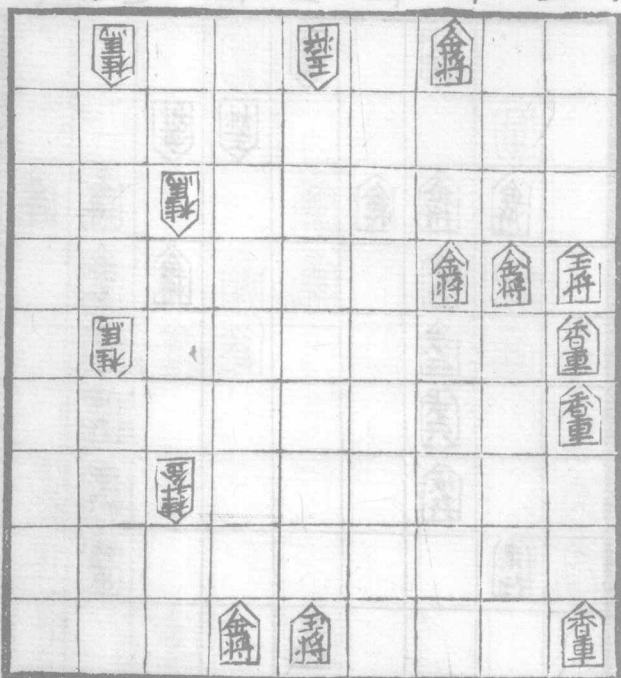 桂馬 王将 金将
桂馬
金将 金将 王将
桂馬 香車
香車
金将 王将 香車